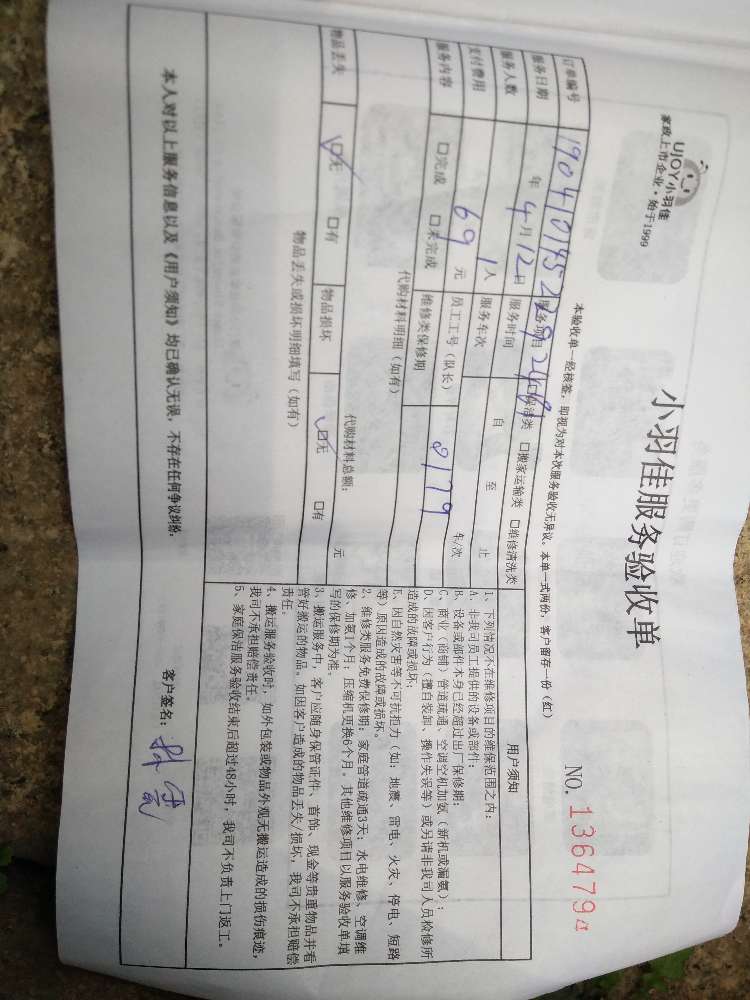 UJOY小羽佳
家政上市企业·始于1999
小羽佳服务验收单
NO. 1364794
本验收单一经核签，即视为对本次服务验收无异议。本单一式两份，客户留存一份（红）
订单编号 服务项目 保洁类 □搬家运输类 □维修清洗类
服务日期 年 4月12日 服务时间 自 至 止
服务人数 1人 服务车次 车/次
支付费用 69 元 员工工号（队长） 8179
服务内容 □完成 □未完成 维修类保修期
代购材料明细（如有）
代购材料总额： 元
物品丢失 ☑无 □有 物品损坏 ☑无 □有
物品丢失或损坏明细填写（如有）
用户须知
1、下列情况不在维修项目的维保范围之内：
A、非我司员工提供的设备或部件；
B、设备或部件本身已经超过出厂保修期；
C、商业（商铺）管道疏通、空调空机加氨（新机或漏氨）；
D、因客户行为（擅自装卸、操作失误等）或另请非我司人员检修所
造成的故障或损坏；
E、因自然灾害等不可抗拒力（如：地震、雷电、火灾、停电、短路
等）原因造成的故障或损坏。
2、维修类服务免费保修期：家庭管道疏通3天；水电维修、空调维
修、加氨1个月；压缩机更换6个月。其他维修项目以服务验收单填
写的保修期为准。
3、搬运服务中，客户应随身保管证件、首饰、现金等贵重物品并看
管好搬运的物品。如因客户造成的物品丢失/损坏，我司不承担赔偿
责任。
4、搬运服务验收时，如外包装或物品外观无搬运造成的损伤痕迹，
我司不承担赔偿责任。
5、家庭保洁服务验收结束后超过48小时，我司不负责上门返工。
本人对以上服务信息以及《用户须知》均已确认无误，不存在任何争议纠纷。
客户签名：